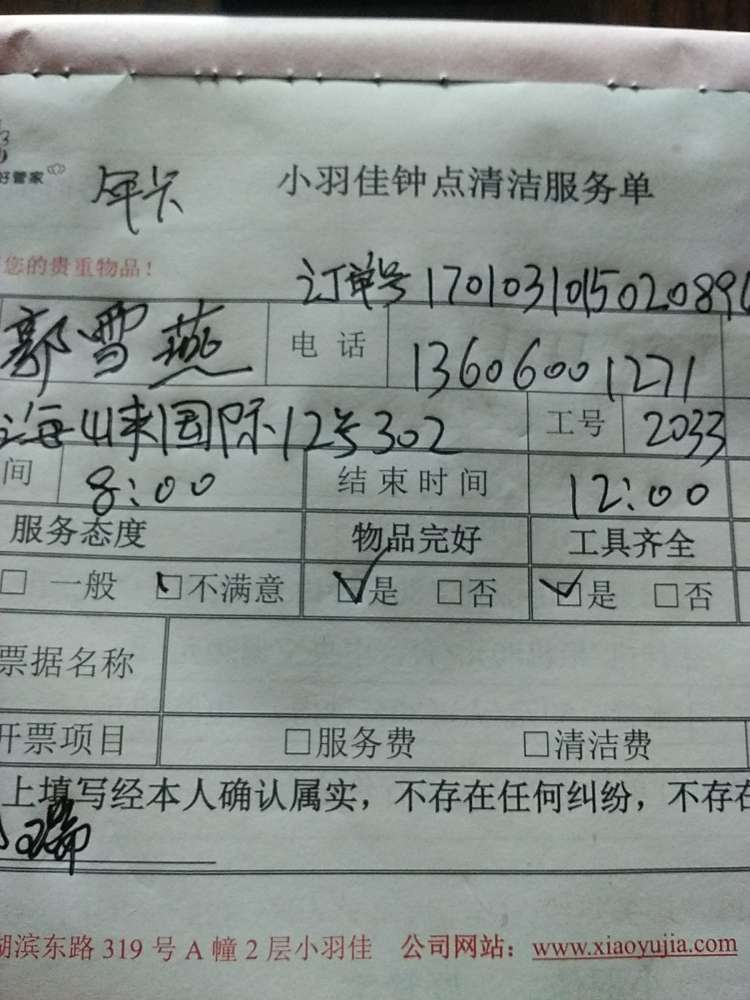 好管家
年卡 小羽佳钟点清洁服务单
您的贵重物品!
订单号 1701031015020896
郭雪燕 电话 13606001271
海山来国际12号302 工号 2033
间 8:00 结束时间 12:00
服务态度 物品完好 工具齐全
□ 一般 □不满意 □是 □否 □是 □否
票据名称
开票项目 □服务费 □清洁费
上填写经本人确认属实，不存在任何纠纷，不存在
瑞
湖滨东路 319 号 A 幢 2 层小羽佳 公司网站：www.xiaoyujia.com